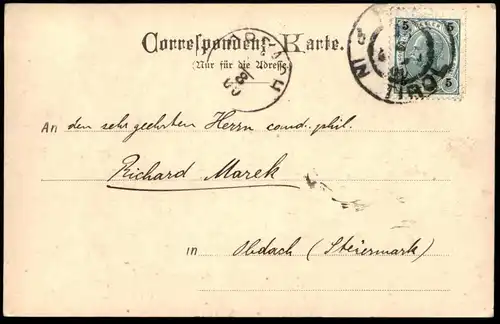 Correspondenz-Karte.
(Nur für die Adresse.)
5 5
5 5
IN TIROL
An den sehr geehrten Herrn cand. phil.
Richard Marek
in Obdach (Steiermark)